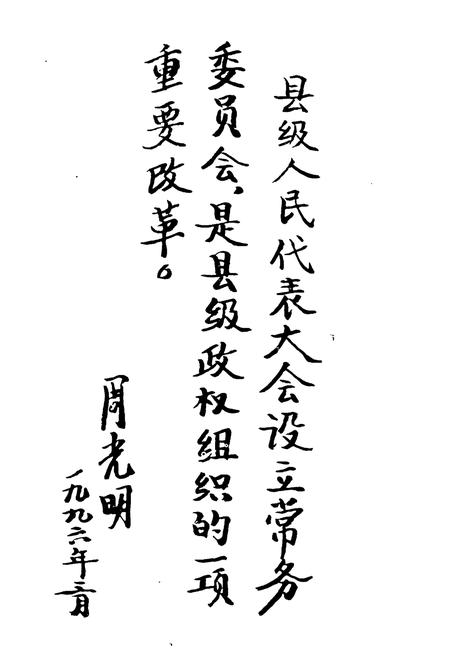 县级人民代表大会设立常务
委员会，是县级政权组织的一项
重要改革。
周光明
一九九六年三月